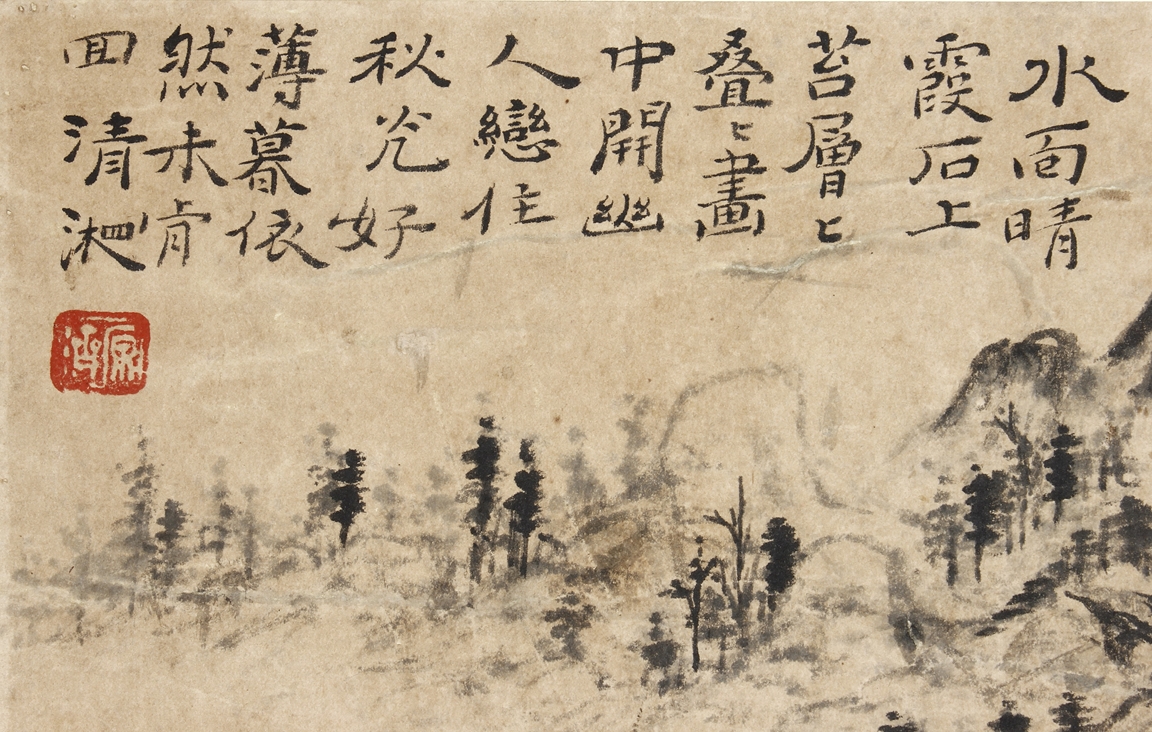 水面晴
霞石上
苔層〻
叠〻畫
中開幽
人戀住
秋光好
薄暮依
然未肯
回清湘
原濟